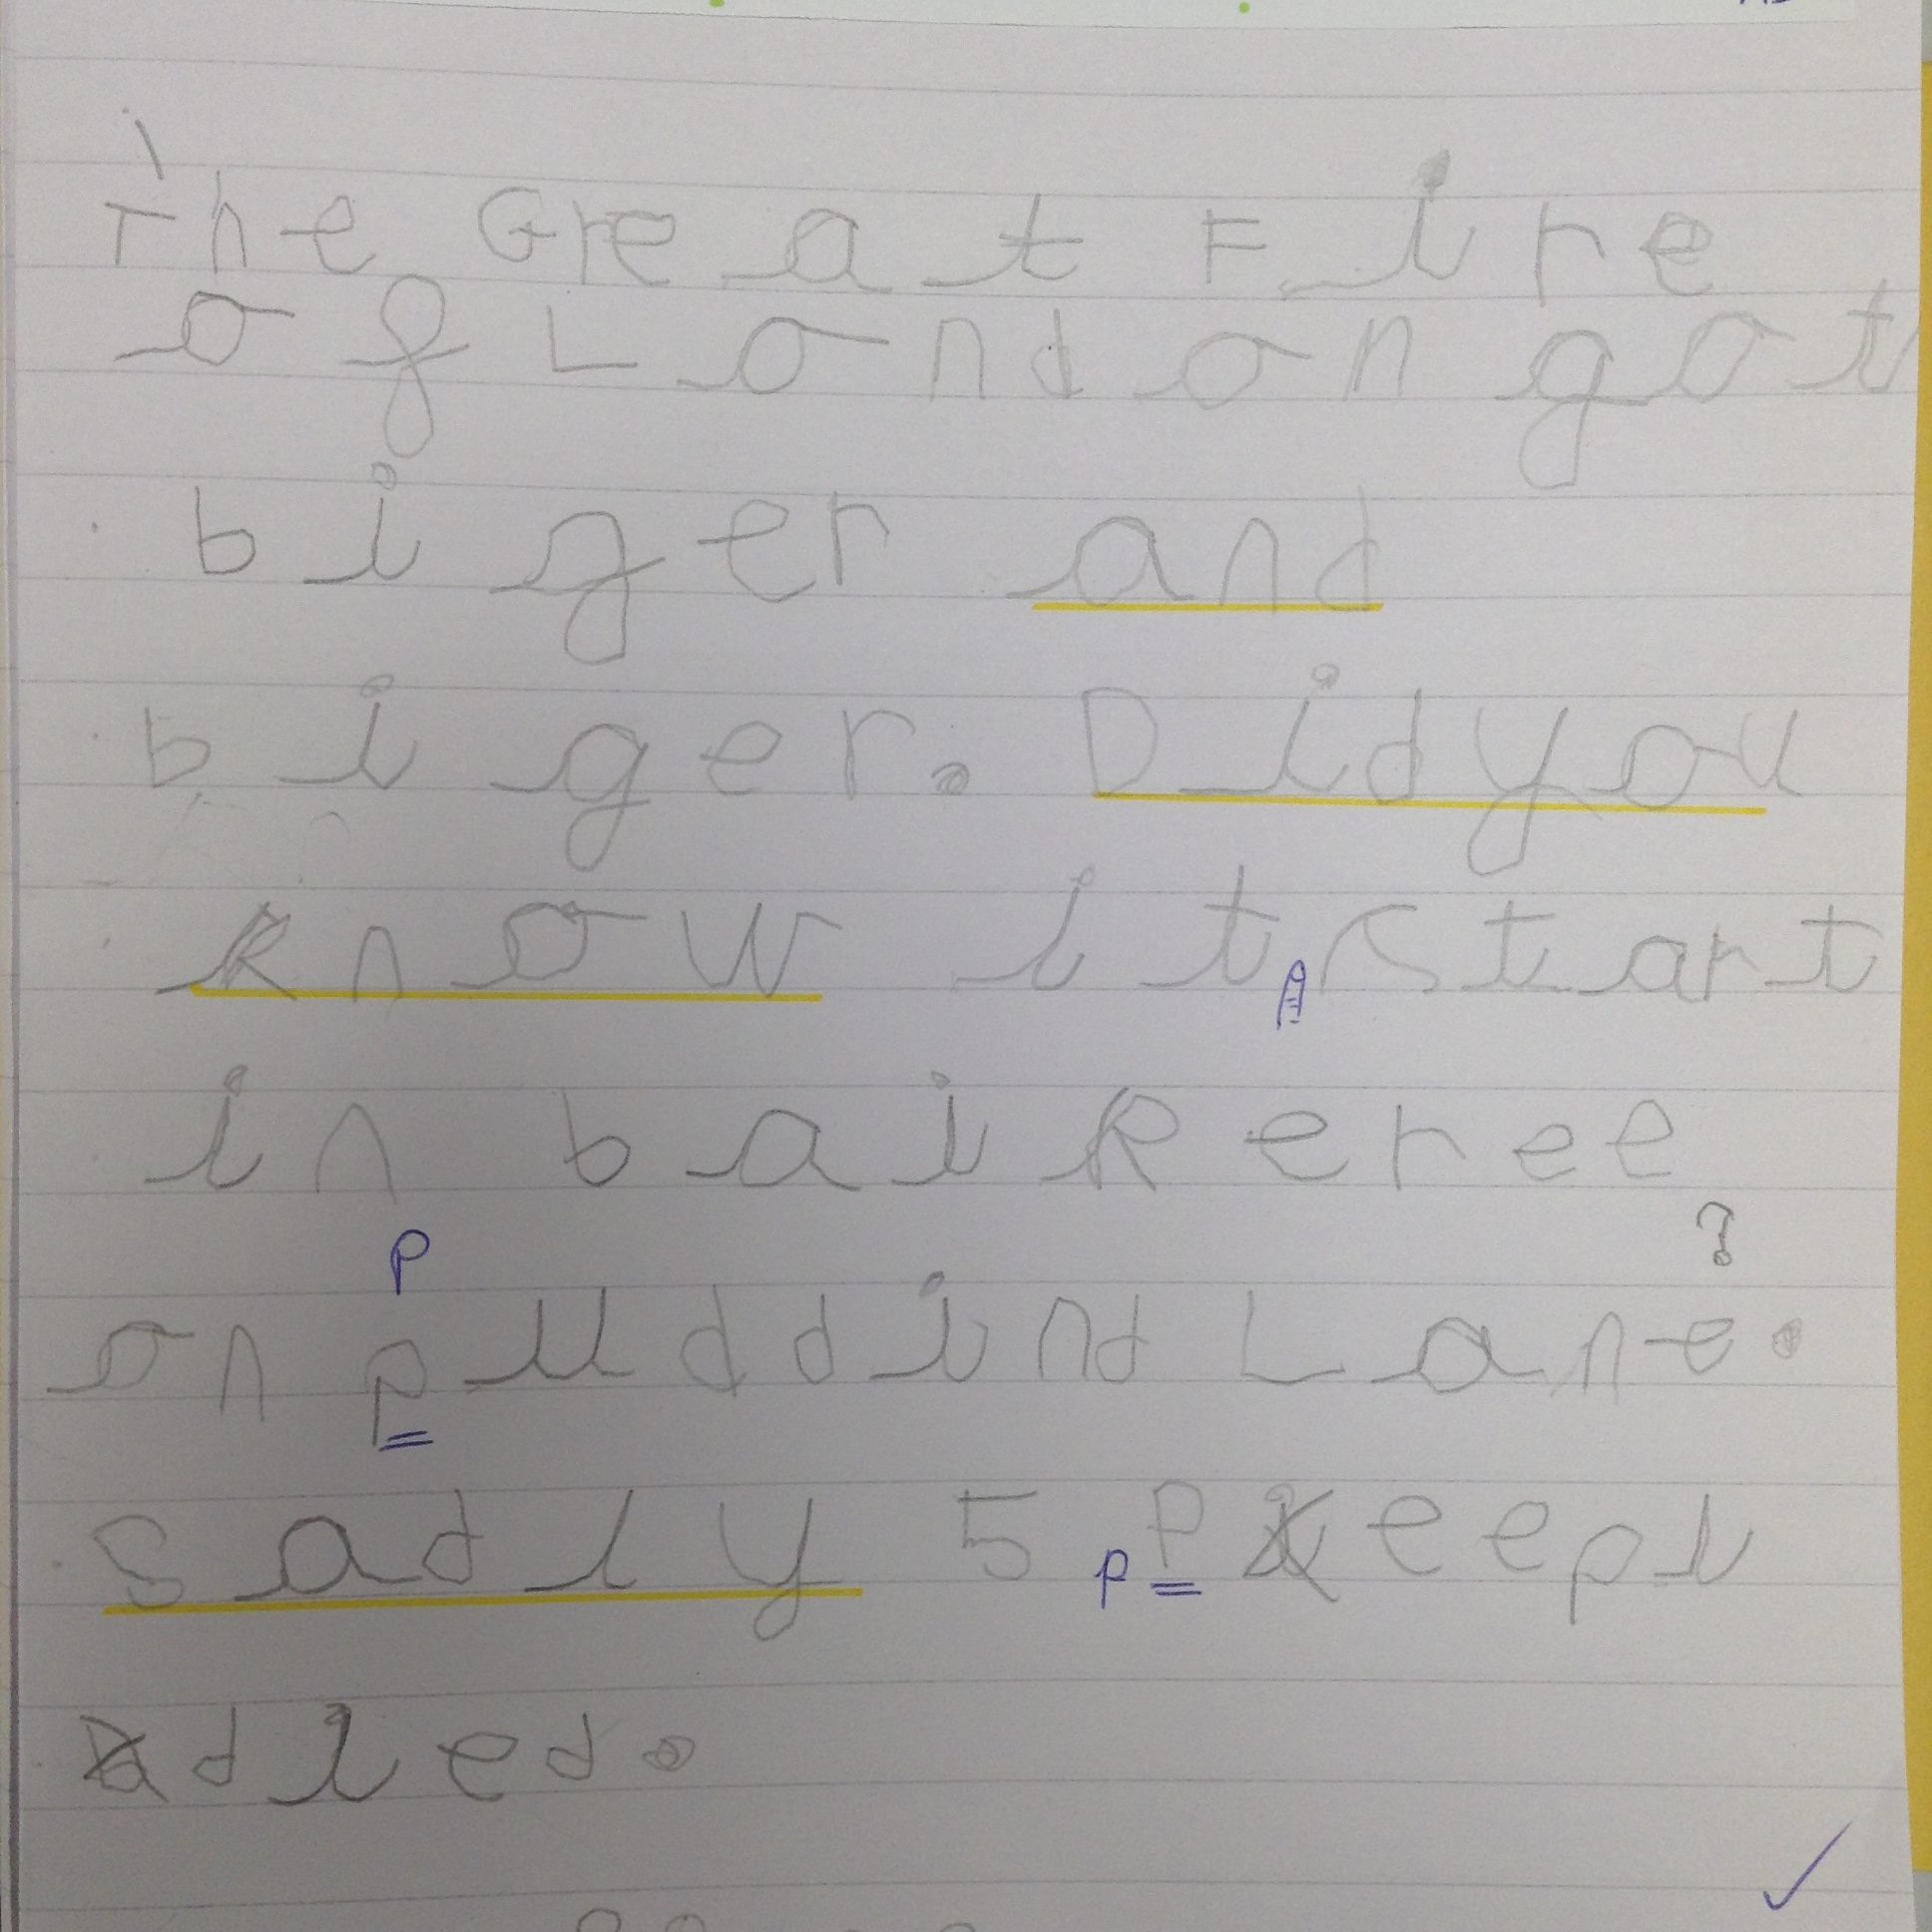 The Great Fire
of London got
biger and
biger. Did you
know it start
in baikeree
?
P
on puddind Lane.
Sadly 5 P eepl
p
died.